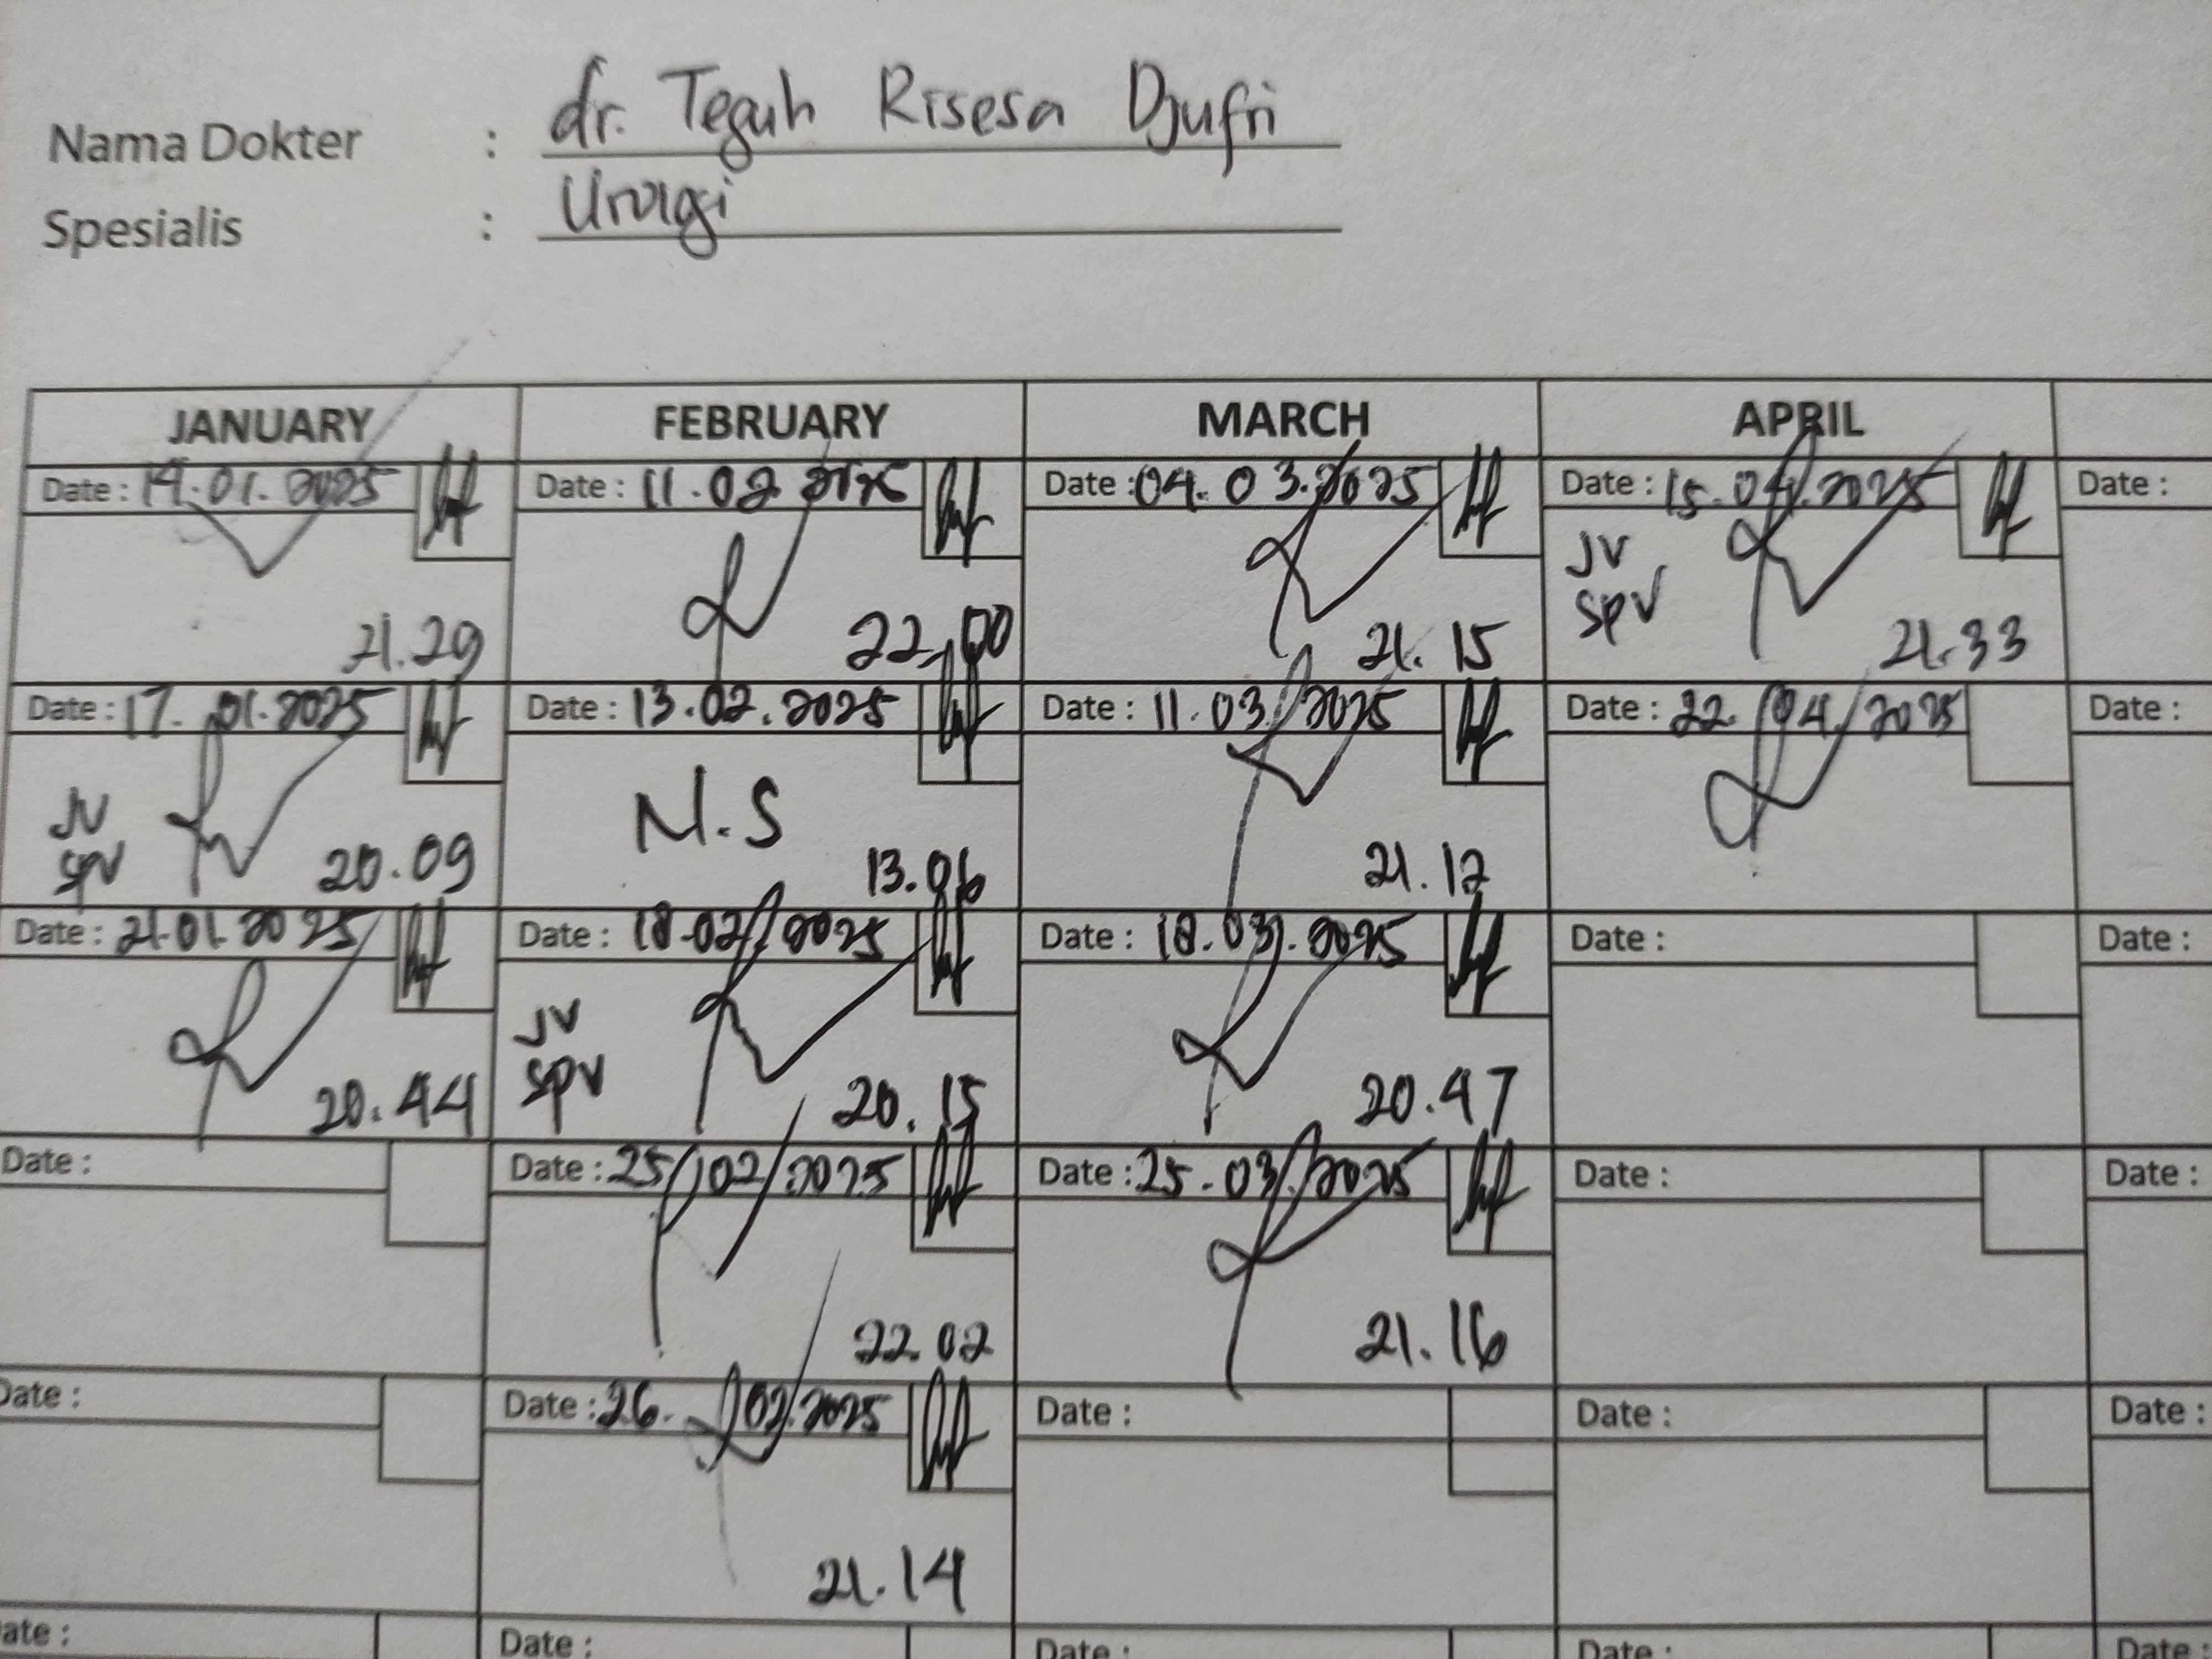 Nama Dokter : dr. Teguh Risesa Djufri
Spesialis : Urologi
JANUARY FEBRUARY MARCH APRIL
Date : 14.01.2025 Date : 11.02.2025 Date : 04.03.2025 Date : 15.04.2025 Date :
JV
SPV
21.29 22.00 21.15 21.33
Date : 17.01.2025 Date : 13.02.2025 Date : 11.03.2025 Date : 22.04.2025 Date :
JV N.S
SPV
20.09 13.06 21.12
Date : 21.01.2025 Date : 18.02.2025 Date : 18.03.2025 Date : Date :
JV
SPV
20.44 20.15 20.47
Date : Date : 25/02/2025 Date : 25.03.2025 Date : Date :
22.02 21.16
Date : Date : 26.02.2025 Date : Date : Date :
21.14
ate : Date : Date : Date : Date :